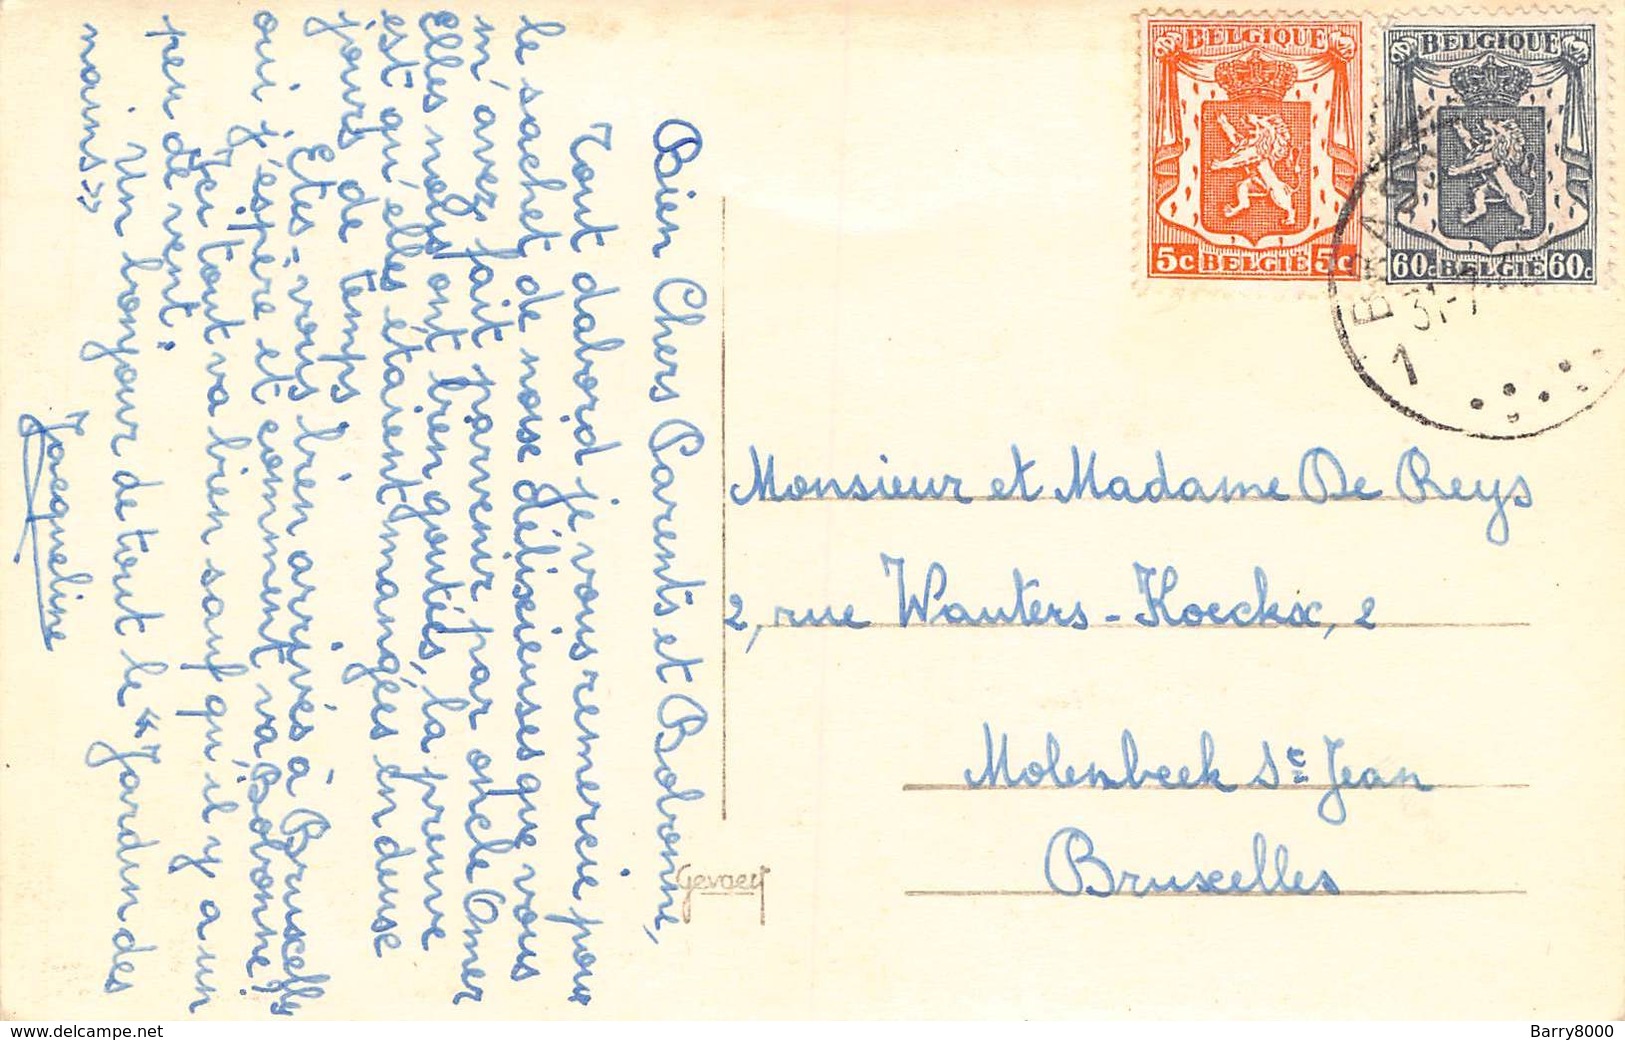 Bien Chers Parents et Bobonne,
Tout dabord je vous remercie pour
le sachet de nose délixieuses que vous
m'avez fait parvenir par oncle Omer
Elles nous ont bien goutés, la preuve
est qu'elles étaient mangées en deuse
jours de temps.
Etes-vous bien arrivés à Bruxelles
oui j'espère et comment va Bobonne!
Ici tout va bien sauf qu'il y a un
peu de vent.
Un bonjour de tout le « Jardin des
nains »
Jacqueline
BELGIQUE
5c BELGIË 5c
BELGIQUE
60c BELGIË 60c
1
31-7
Monsieur et Madame De Reys
2, rue Wauters-Koeckx, 2
Molenbeek St Jean
Bruxelles
Gevaert
www.delcampe.net
Barry8000